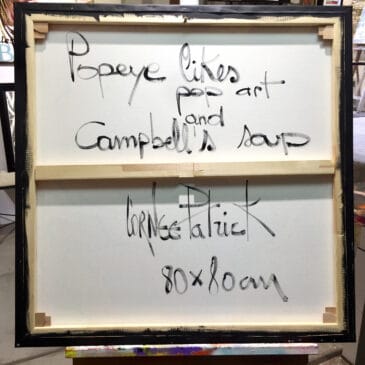 Popeye likes
pop art
and
Campbell's soup
CORNEE Patrick
80x80cm